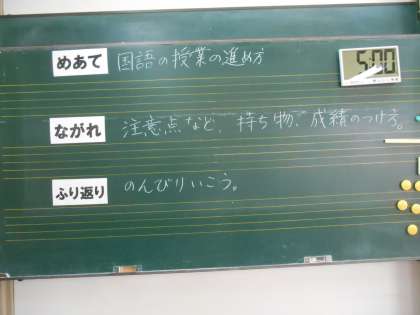 めあて 国語の授業の進め方
5:00
ながれ 注意点など、持ち物、成績のつけ方。
ふり返り のんびりいこう。